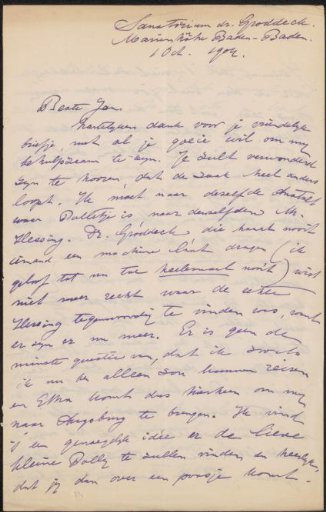 Sanatorium dr. Groddeck.
Marienhöhe Baden-Baden.
1 Oct. 1904.
Beste Jan.
hartelijken dank voor je vriendelijk
briefje, met al je goeie wil om mij
behulpzaam te zijn. Je zult verwonderd
zijn te hooren, dat de zaak heel anders
loopt. Ik moet naar dezelfde
waar Dolletje is, naar denzelfden Mr.
Hessing. Dr. Groddeck die haast nooit
iemand een machine laat dragen (ik
geloof tot nu toe heelemaal nooit) wist
niet meer recht waar de echte
Hessing tegenwoordig te vinden was, want
er zijn er nu meer. Er is geen de
minste quaestie van, dat ik zooals
ik nu ben alleen zou kunnen reizen
en Etha komt dus hierheen om mij
naar Augsburg te brengen. Ik vind
't een genoegelijk idee er de lieve
kleine Dolly te zullen vinden en heerlijk,
dat jij dan over een poosje komt.